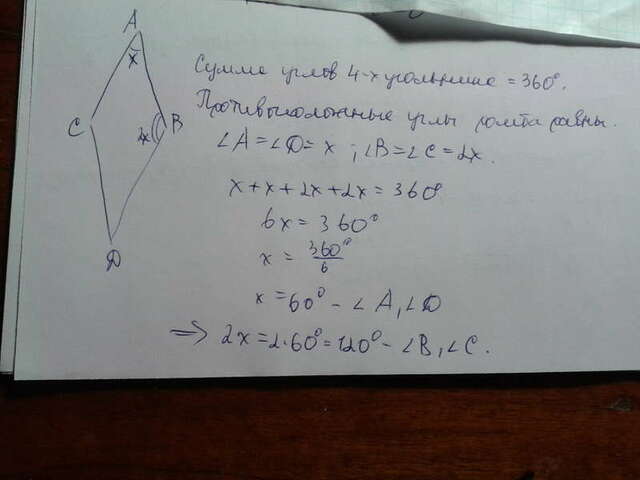 A
x
C
2x B
D
Сумма углов 4-х угольника = 360°.
Противоположные углы ромба равны.
∠A = ∠D = x ; ∠B = ∠C = 2x.
x + x + 2x + 2x = 360°
6x = 360°
x = 360°/6
x = 60° - ∠A, ∠D
⇒ 2x = 2·60° = 120° - ∠B, ∠C.